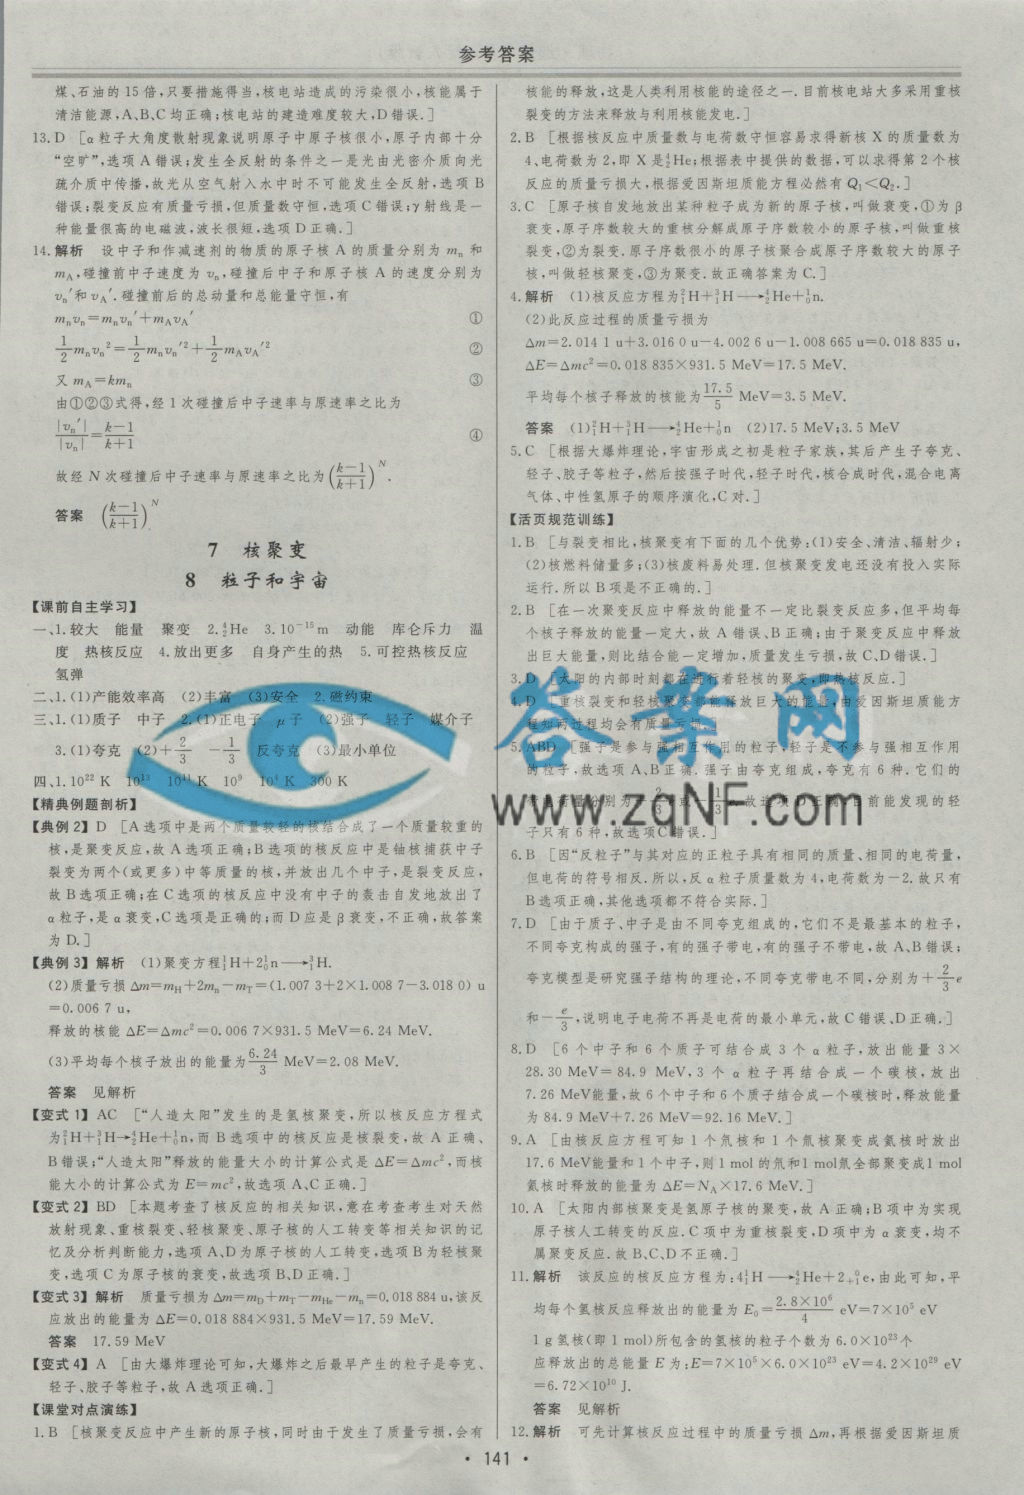 参考答案
煤、石油的 15 倍,只要措施得当,核电站造成的污染很小,核能属于
清洁能源,A、B、C 均正确;核电站的建造难度较大,D 错误.]
13.D [α粒子大角度散射现象说明原子中原子核很小,原子内部十分
“空旷”,选项 A 错误;发生全反射的条件之一是光由光密介质向光
疏介质中传播,故光从空气射入水中时不可能发生全反射,选项 B
错误;裂变反应有质量亏损,但质量数守恒,选项 C 错误;γ射线是一
种能量很高的电磁波,波长很短,选项 D 正确.]
14.解析 设中子和作减速剂的物质的原子核 A 的质量分别为 mₙ 和
m_A,碰撞前中子速度为 vₙ,碰撞后中子和原子核 A 的速度分别为
vₙ′和 v_A′.碰撞前后的总动量和总能量守恒,有
mₙvₙ=mₙvₙ′+m_Av_A′ ①
1/2 mₙvₙ²=1/2 mₙvₙ′²+1/2 m_Av_A′² ②
又 m_A=kmₙ ③
由①②③式得,经 1 次碰撞后中子速率与原速率之比为
|vₙ′|/|vₙ|=(k−1)/(k+1) ④
故经 N 次碰撞后中子速率与原速率之比为((k−1)/(k+1))^N.
答案 ((k−1)/(k+1))^N
7 核聚变
8 粒子和宇宙
【课前自主学习】
一、1.较大 能量 聚变 2.⁴₂He 3.10⁻¹⁵m 动能 库仑斥力 温
度 热核反应 4.放出更多 自身产生的热 5.可控热核反应
氢弹
二、1.(1)产能效率高 (2)丰富 (3)安全 2.磁约束
三、1.(1)质子 中子 2.(1)正电子 μ子 (2)强子 轻子 媒介子
3.(1)夸克 (2)+2/3 −1/3 反夸克 (3)最小单位
四、1.10²² K 10¹³ 10¹¹ K 10⁹ 10⁴ K 300 K
【精典例题剖析】
【典例 2】D [A 选项中是两个质量较轻的核结合成了一个质量较重的
核,是聚变反应,故 A 选项正确;B 选项的核反应中是铀核捕获中子
裂变为两个(或更多)中等质量的核,并放出几个中子,是裂变反应,
故 B 选项正确;在 C 选项的核反应中没有中子的轰击自发地放出了
α粒子,是α衰变,C 选项是正确的;而 D 应是β衰变,不正确,故答案
为 D.]
【典例 3】解析 (1)聚变方程¹₁H+2¹₀n⟶³₁H.
(2)质量亏损 Δm=m_H+2mₙ−m_T=(1.007 3+2×1.008 7−3.018 0) u
=0.006 7 u,
释放的核能 ΔE=Δmc²=0.006 7×931.5 MeV=6.24 MeV.
(3)平均每个核子放出的能量为6.24/3 MeV=2.08 MeV.
答案 见解析
【变式 1】AC [“人造太阳”发生的是氢核聚变,所以核反应方程式
为²₁H+³₁H→⁴₂He+¹₀n,而 B 选项中的核反应是核裂变,故 A 正确、
B 错误;“人造太阳”释放的能量大小的计算公式是 ΔE=Δmc²,而核
能大小的计算公式为 E=mc²,故选项 A、C 正确.]
【变式 2】BD [本题考查了核反应的相关知识,意在考查考生对天然
放射现象、重核裂变、轻核聚变、原子核的人工转变等相关知识的记
忆及分析判断能力,选项 A、D 为原子核的人工转变,选项 B 为轻核聚
变,选项 C 为原子核的衰变,故选项 B、D 正确.]
【变式 3】解析 质量亏损为 Δm=m_D+m_T−m_He−mₙ=0.018 884 u,该反
应放出的能量为 ΔE=0.018 884×931.5 MeV=17.59 MeV.
答案 17.59 MeV
【变式 4】A [由大爆炸理论可知,大爆炸之后最早产生的粒子是夸克、
轻子、胶子等粒子,故 A 选项正确.]
【课堂对点演练】
1.B [核聚变反应中产生新的原子核,同时由于发生了质量亏损,会有
核能的释放,这是人类利用核能的途径之一.目前核电站大多采用重核
裂变的方法来释放与利用核能发电.]
2.B [根据核反应中质量数与电荷数守恒容易求得新核 X 的质量数为
4、电荷数为 2,即 X 是⁴₂He;根据表中提供的数据,可以求得第 2 个核
反应的质量亏损大,根据爱因斯坦质能方程必然有 Q₁<Q₂.]
3.C [原子核自发地放出某种粒子成为新的原子核,叫做衰变,①为β
衰变,原子序数较大的重核分解成原子序数较小的原子核,叫做重核
裂变,②为裂变.原子序数很小的原子核聚合成原子序数较大的原子
核,叫做轻核聚变,③为聚变.故正确答案为 C.]
4.解析 (1)核反应方程为²₁H+³₁H⟶⁴₂He+¹₀n.
(2)此反应过程的质量亏损为
Δm=2.014 1 u+3.016 0 u−4.002 6 u−1.008 665 u=0.018 835 u,
ΔE=Δmc²=0.018 835×931.5 MeV=17.5 MeV.
平均每个核子释放的核能为17.5/5 MeV=3.5 MeV.
答案 (1)²₁H+³₁H⟶⁴₂He+¹₀n (2)17.5 MeV;3.5 MeV
5.C [根据大爆炸理论,宇宙形成之初是粒子家族,其后产生子夸克、
轻子、胶子等粒子,然后按强子时代,轻子时代,核合成时代,混合电离
气体、中性氢原子的顺序演化,C 对.]
【活页规范训练】
1.B [与裂变相比,核聚变有下面的几个优势:(1)安全、清洁、辐射少;
(2)核燃料储量多;(3)核废料易处理.但核聚变发电还没有投入实际
运行.所以 B 项是不正确的.]
2.B [在一次聚变反应中释放的能量不一定比裂变反应多,但平均每
个核子释放的能量一定大,故 A 错误、B 正确;由于聚变反应中释放
出巨大能量,则比结合能一定增加,质量发生亏损,故 C、D 错误.]
3.D [太阳的内部时刻都在进行着轻核的聚变,即热核反应.]
4.D [重核裂变和轻核聚变都能释放巨大的能量,由爱因斯坦质能方
程知两过程均会有质量亏损.]
5.ABD [强子是参与强相互作用的粒子,轻子是不参与强相互作用
的粒子,故选项 A、B 正确.强子由夸克组成,夸克有 6 种.它们的
带电荷量分别为+2/3或−1/3e,故选项 D 正确.目前能发现的轻
子只有 6 种,故选项 C 错误.]
6.B [因“反粒子”与其对应的正粒子具有相同的质量、相同的电荷量,
但电荷的符号相反.所以,反α粒子质量数为 4,电荷数为−2.故只有
B 选项正确,其他选项都不符合实际.]
7.D [由于质子、中子是由不同夸克组成的,它们不是最基本的粒子,
不同夸克构成的强子,有的强子带电,有的强子不带电,故 A、B 错误;
夸克模型是研究强子结构的理论,不同夸克带电不同,分别为+2/3 e
和−e/3,说明电子电荷不再是电荷的最小单元,故 C 错误、D 正确.]
8.D [6 个中子和 6 个质子可结合成 3 个 α 粒子,放出能量 3×
28.30 MeV=84.9 MeV,3 个 α 粒子再结合成一个碳核,放出
7.26 MeV能量,故 6 个中子和 6 个质子结合成一个碳核时,释放能量
为 84.9 MeV+7.26 MeV=92.16 MeV.]
9.A [由核反应方程可知 1 个氘核和 1 个氚核聚变成氦核时放出
17.6 MeV能量和 1 个中子,则 1 mol 的氘和1 mol氚全部聚变成1 mol
氦核时释放的能量为 ΔE=N_A×17.6 MeV.]
10.A [太阳内部核聚变是氢原子核的聚变,故 A 正确;B 项中为实现
原子核人工转变的反应.C 项中为重核裂变,D 项中为 α 衰变,均不
属聚变反应.故 B、C、D 不正确.]
11.解析 该反应的核反应方程为:4¹₁H⟶⁴₂He+2⁰₊₁e,由此可知,平
均每个氢核反应释放出的能量为 E₀=2.8×10⁶/4 eV=7×10⁵ eV
1 g 氢核(即 1 mol)所包含的氢核的粒子个数为 6.0×10²³个
应释放出的总能量 E 为:E=7×10⁵×6.0×10²³ eV=4.2×10²⁹ eV
=6.72×10¹⁰ J.
答案 见解析
12.解析 可先计算核反应过程中的质量亏损 Δm,再根据爱因斯坦质
答案网
www.zqNF.com
• 141 •